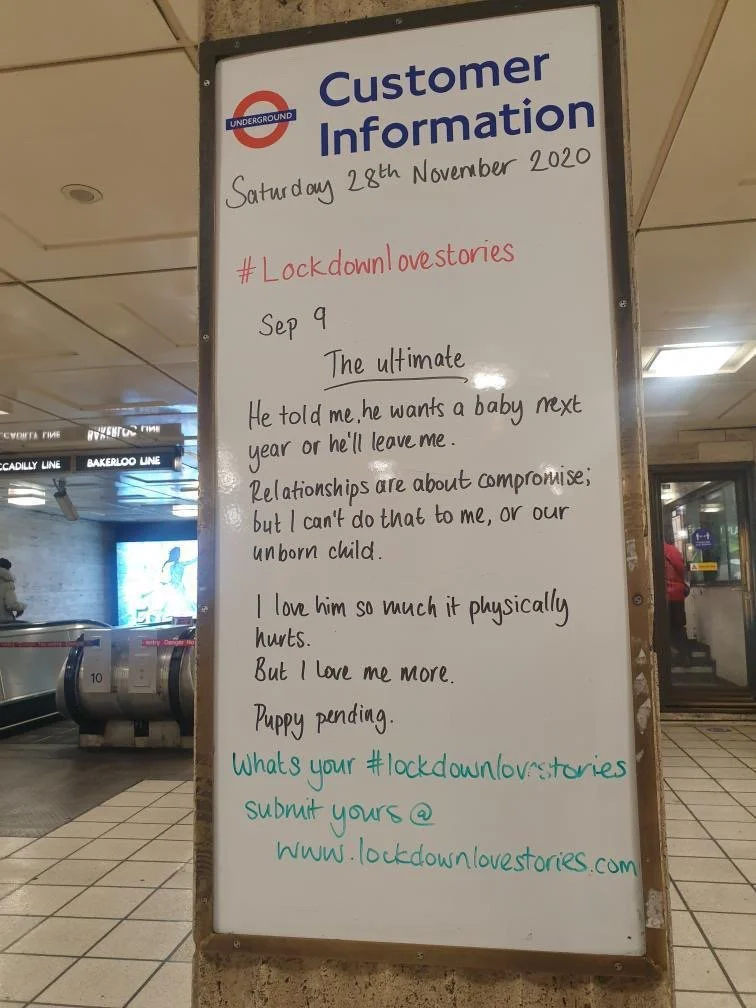 UNDERGROUND
Customer
Information
Saturday 28th November 2020
#Lockdownlovestories
Sep 9
The ultimate
He told me, he wants a baby next
year or he'll leave me.
Relationships are about compromise;
but I can't do that to me, or our
unborn child.
I love him so much it physically
hurts.
But I love me more.
Puppy pending.
Whats your #lockdownlovestories
submit yours @
www.lockdownlovestories.com
CCADILLY LINE
BAKERLOO LINE
10